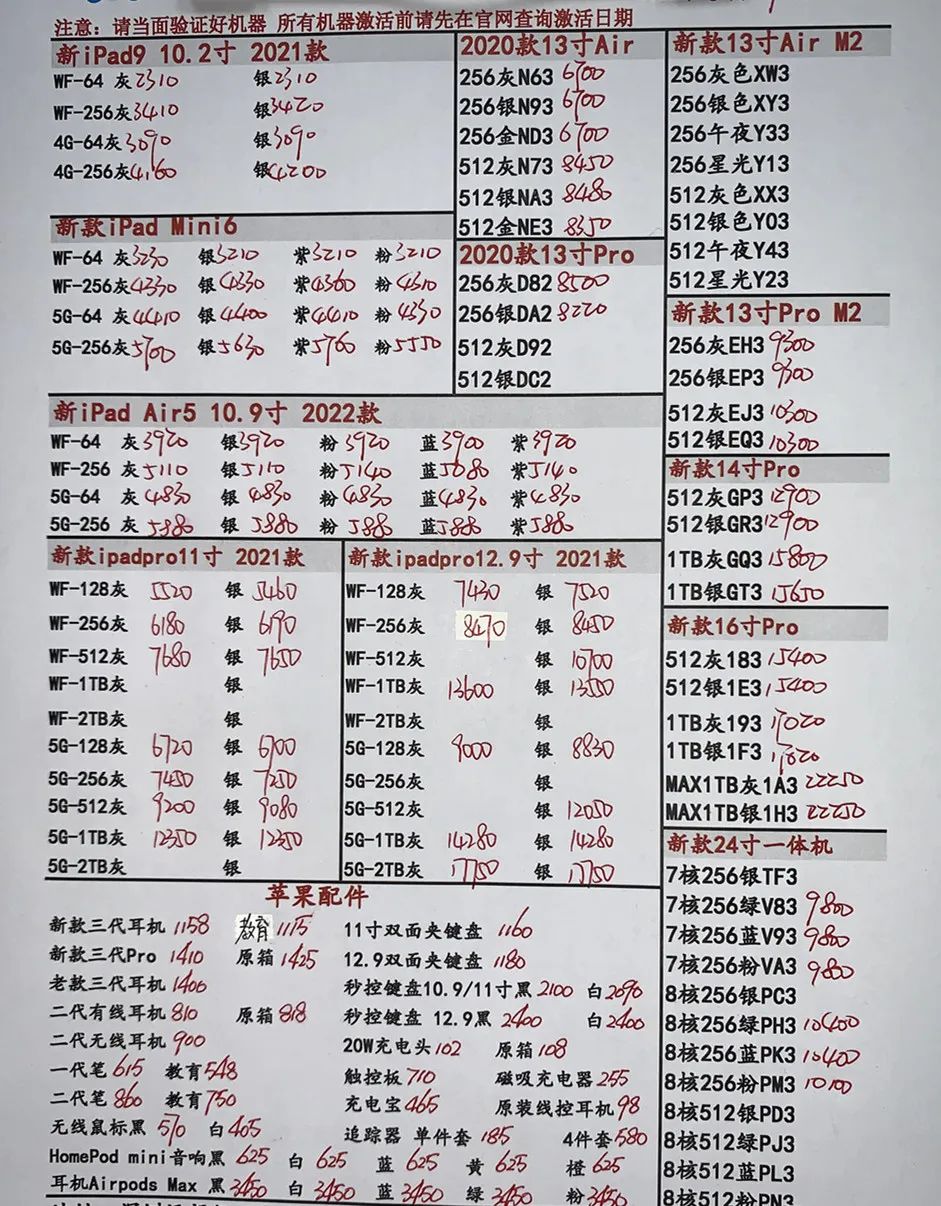 注意：请当面验证好机器 所有机器激活前请先在官网查询激活日期
新iPad9 10.2寸 2021款
WF-64 灰2310 银2310
WF-256灰3410 银3420
4G-64灰3090 银3090
4G-256灰4160 银4200
新款iPad Mini6
WF-64 灰3230 银3210 紫3210 粉3210
WF-256灰4330 银4330 紫4360 粉4310
5G-64 灰4410 银4400 紫4410 粉4330
5G-256灰5700 银5630 紫5760 粉5550
2020款13寸Air
256灰N63 6700
256银N93 6700
256金ND3 6700
512灰N73 8450
512银NA3 8480
512金NE3 8350
2020款13寸Pro
256灰D82 8500
256银DA2 8220
512灰D92
512银DC2
新款13寸Air M2
256灰色XW3
256银色XY3
256午夜Y33
256星光Y13
512灰色XX3
512银色Y03
512午夜Y43
512星光Y23
新款13寸Pro M2
256灰EH3 9300
256银EP3 9300
512灰EJ3 10300
512银EQ3 10300
新iPad Air5 10.9寸 2022款
WF-64 灰3920 银3920 粉3920 蓝3900 紫3920
WF-256 灰5110 银5110 粉5140 蓝5080 紫5140
5G-64 灰4830 银4830 粉4830 蓝4830 紫4830
5G-256 灰5880 银5880 粉5880 蓝5880 紫5880
新款14寸Pro
512灰GP3 12900
512银GR3 12900
1TB灰GQ3 15800
1TB银GT3 15650
新款ipadpro11寸 2021款
WF-128灰 5520 银 5460
WF-256灰 6180 银 6190
WF-512灰 7680 银 7650
WF-1TB灰 银
WF-2TB灰 银
5G-128灰 6720 银 6700
5G-256灰 7450 银 7250
5G-512灰 9200 银 9080
5G-1TB灰 12350 银 12350
5G-2TB灰 银
新款ipadpro12.9寸 2021款
WF-128灰 7430 银 7520
WF-256灰 8470 银 8450
WF-512灰 银 10700
WF-1TB灰 13600 银 13550
WF-2TB灰 银
5G-128灰 9000 银 8830
5G-256灰 银
5G-512灰 银 12050
5G-1TB灰 14280 银 14280
5G-2TB灰 17750 银 17750
新款16寸Pro
512灰183 15400
512银1E3 15400
1TB灰193 17020
1TB银1F3 17020
MAX1TB灰1A3 22250
MAX1TB银1H3 22250
新款24寸一体机
7核256银TF3
7核256绿V83 9800
7核256蓝V93 9800
7核256粉VA3 9800
8核256银PC3
8核256绿PH3 10400
8核256蓝PK3 10400
8核256粉PM3 10100
8核512银PD3
8核512绿PJ3
8核512蓝PL3
8核512粉PN3
苹果配件
新款三代耳机 1158 教育 1115
新款三代Pro 1410 原箱 1425
老款三代耳机 1400
二代有线耳机 810 原箱 818
二代无线耳机 900
一代笔 615 教育 548
二代笔 860 教育 750
无线鼠标黑 570 白 405
11寸双面夹键盘 1160
12.9双面夹键盘 1180
秒控键盘10.9/11寸黑 2100 白 2090
秒控键盘 12.9黑 2400 白 2400
20W充电头 102 原箱 108
触控板 710 磁吸充电器 255
充电宝 465 原装线控耳机 98
追踪器 单件套 185 4件套 580
HomePod mini音响黑 625 白 625 蓝 625 黄 625 橙 625
耳机Airpods Max 黑 3450 白 3450 蓝 3450 绿 3450 粉 3450